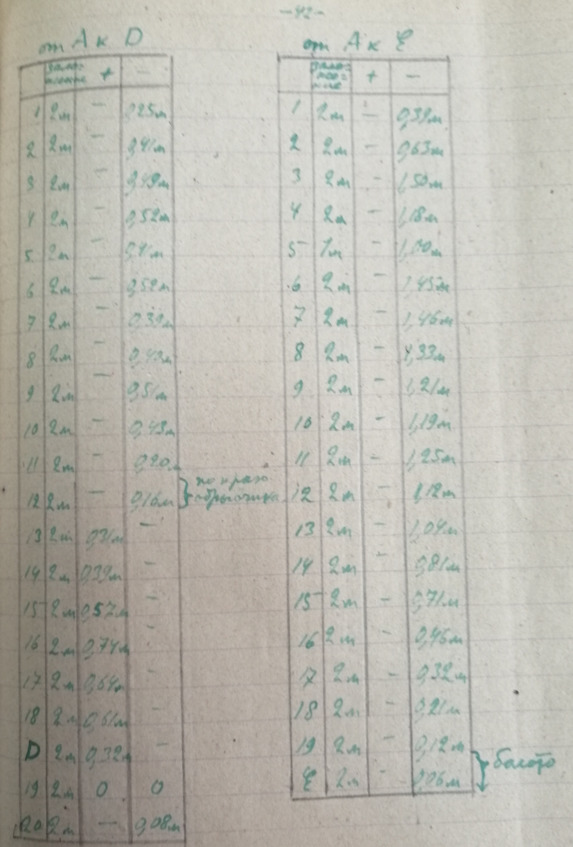 -42-
от А к D
зало-
жение + -
1 2м - 0,25м
2 2м - 0,41м
3 2м - 0,49м
4 2м - 0,52м
5 2м - 0,41м
6 2м - 0,52м
7 2м - 0,39м
8 2м - 0,43м
9 2м - 0,51м
10 2м - 0,43м
11 2м - 0,20м
12 2м - 0,16м
по краю
обрывчика
13 2м 0,31м -
14 2м 0,39м -
15 2м 0,57м -
16 2м 0,74м -
17 2м 0,64м -
18 2м 0,61м -
D 2м 0,32м -
19 2м 0 0
20 2м - 0,08м
от А к Е
+ -
1 2м - 0,39м
2 2м - 0,63м
3 2м - 1,50м
4 2м - 1,18м
5 1м -
6 2м - 1,45м
7 2м - 1,46м
8 2м - 1,33м
9 2м - 1,21м
10 2м - 1,19м
11 2м - 1,25м
12 2м - 1,12м
13 2м - 1,04м
14 2м - 0,81м
15 2м - 0,71м
16 2м - 0,46м
17 2м - 0,32м
18 2м - 0,21м
19 2м - 0,12м
Е 2м - 0,06м
болото